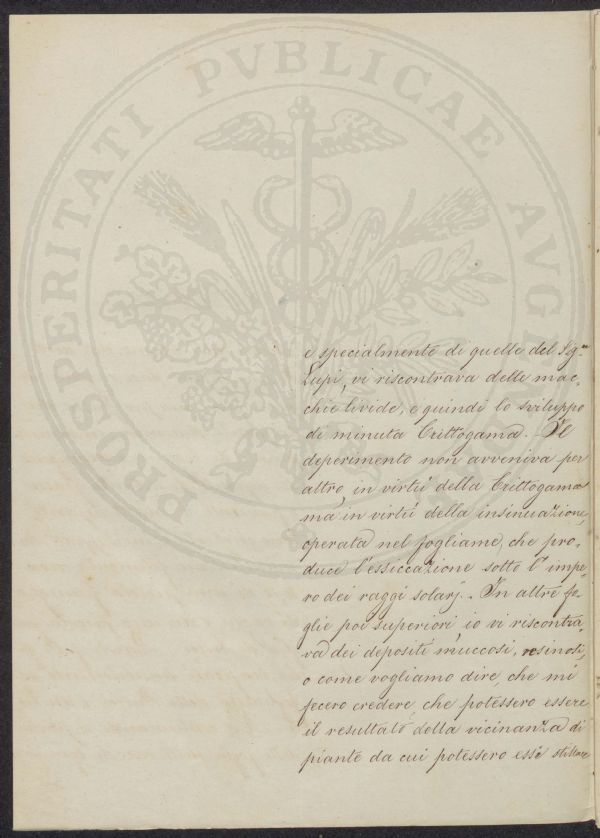 PROSPERITATI PVBLICAE AVGE
e specialmente di quelle del Sg.re
Lupi, vi riscontrava delle mac-
chie livide, e quindi lo sviluppo
di minuta Crittogama. Il
deperimento non avveniva per
altro in virtù della Crittogama
ma in virtù della insinuazione,
operata nel fogliame, che pro-
duce l'essiccazione sotto l'impe-
ro dei raggi solarj. In altre fo-
glie poi superiori io vi riscontra-
va dei depositi muccosi, resinosi,
o come vogliamo dire, che mi
fecero credere, che potessero essere
il resultato della vicinanza di
piante da cui potessero essi stillare